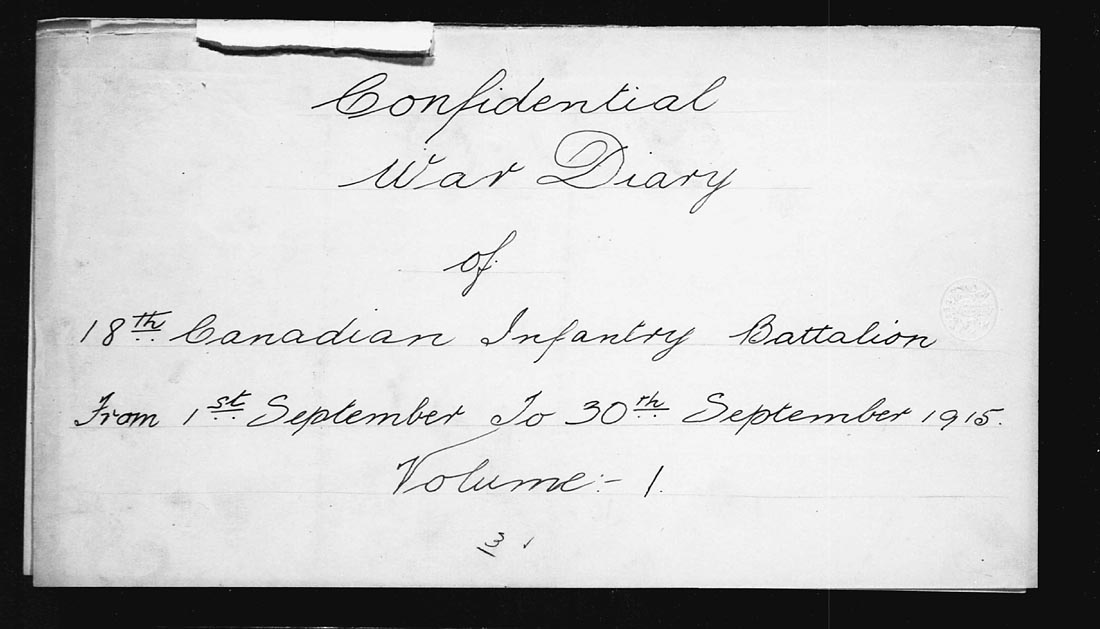 Confidential
War Diary
of
18th Canadian Infantry Battalion
From 1st September To 30th September 1915.
Volume:- 1.
3